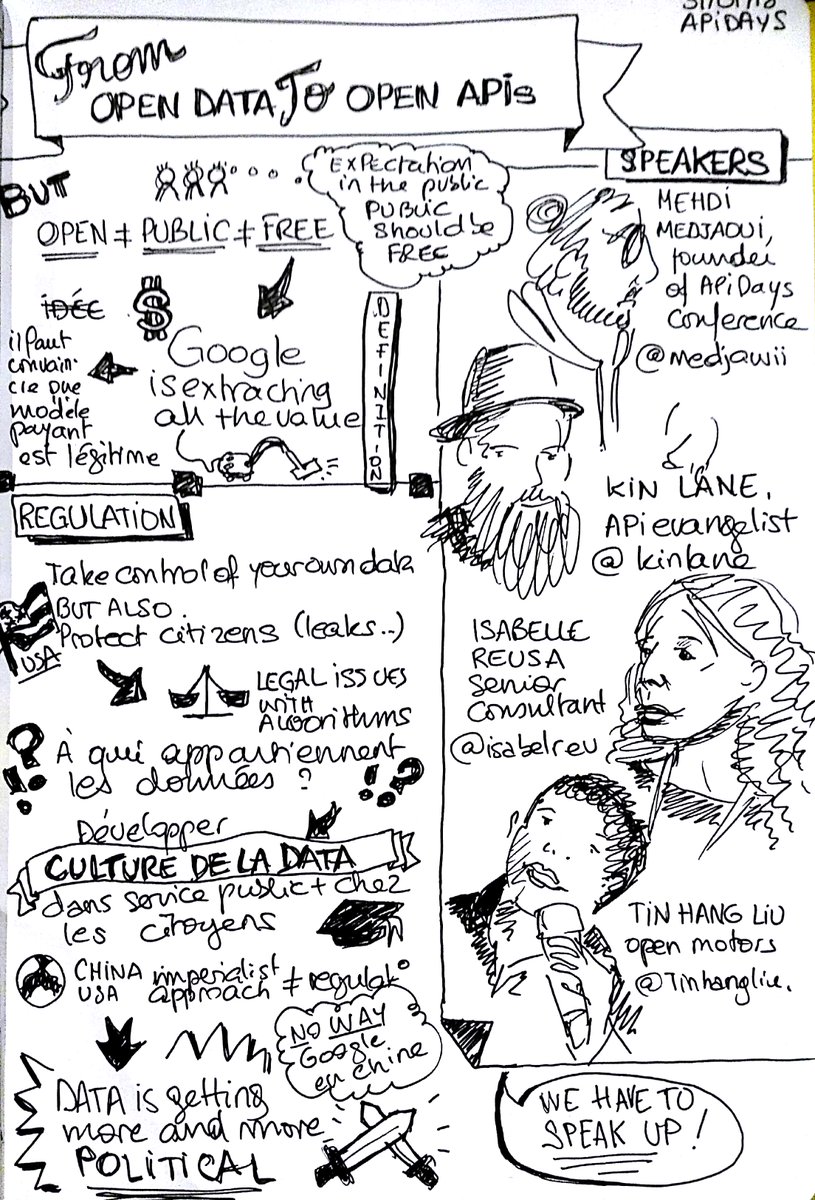 APiDAYS
From
OPEN DATA TO OPEN APIs
BUT
OPEN ≠ PUBLIC ≠ FREE
EXPECTATION
in the public
PUBLIC
should be
FREE
iDÉE
$
il faut
convain-
cre que
modèle
payant
est légitime
Google
is extracting
all the value
DEFINITION
REGULATION
Take control of your own data
BUT ALSO.
Protect citizens (leaks..)
USA
LEGAL ISSUES
WITH
ALGORITHMS
? À qui appartiennent
les données ?
! !?
Développer
CULTURE DE LA DATA
dans service public + chez
les citoyens
CHINA imperialist ≠ regulat°
USA approach
NO WAY
Google
en chine
DATA is getting
more and more
POLITICAL
SPEAKERS
MEHDI
MEDJAOUI,
founder
of APiDays
Conference
@medjawii
KIN LANE.
APi evangelist
@kinlane
ISABELLE
REUSA
Senior
Consultant
@isabelreu
TiN HANG LIU
open motors
@Tinhangliu.
WE HAVE TO
SPEAK UP !